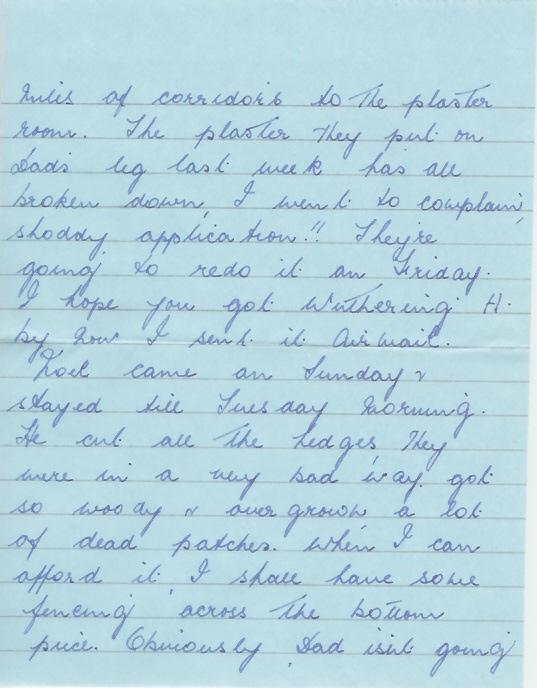 miles of corridors to the plaster
room. The plaster they put on
Dads leg last week has all
broken down, I went to complain,
shoddy application!! They're
going to redo it on Friday.
I hope you got Wuthering H.
by now I sent it Airmail.
Noel came on Sunday &
stayed till Tuesday morning.
He cut all the hedges, they
were in a very bad way, got
so woody & overgrown a lot
of dead patches. When I can
afford it, I shall have some
fencing across the bottom
price. Obviously, Dad isn't going